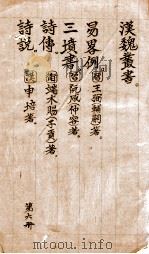 漢魏叢書
易畧例 魏王弼輔嗣著
三墳書 晉阮咸仲容著
詩傳 周端木賜子貢著
詩說 漢申培著
第六册
http://www.dutoou.info